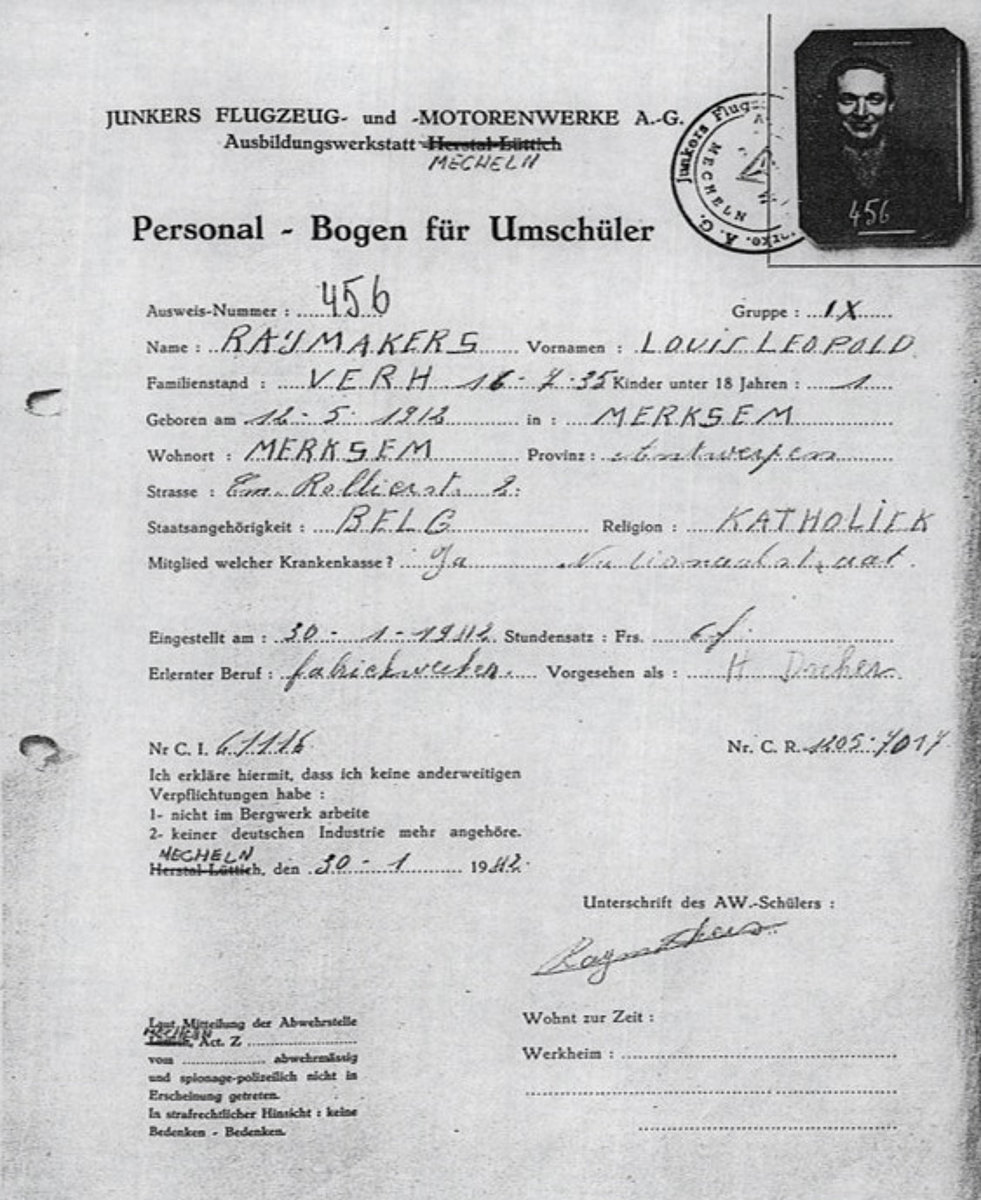 JUNKERS FLUGZEUG- und -MOTORENWERKE A.-G.
Ausbildungswerkstatt Herstal-Lüttich
MECHELN
Junkers Flugz
MECHELN
A. G.
456
Personal - Bogen für Umschüler
Ausweis-Nummer : 456 Gruppe : IX
Name : RAYMAKERS Vornamen : LOUIS LEOPOLD
Familienstand : VERH 16-7-35 Kinder unter 18 Jahren : 1
Geboren am 12-5-1912 in : MERKSEM
Wohnort : MERKSEM Provinz : Antwerpen
Strasse : Em. Rollierst. 2.
Staatsangehörigkeit : BELG Religion : KATHOLIEK
Mitglied welcher Krankenkasse ? Ja
Eingestellt am : 30-1-1942 Stundensatz : Frs.
Erlernter Beruf : Vorgesehen als : H Dreher
Nr C. I. 61116 Nr. C. R. 1205-7017
Ich erkläre hiermit, dass ich keine anderweitigen
Verpflichtungen habe :
1- nicht im Bergwerk arbeite
2- keiner deutschen Industrie mehr angehöre.
MECHELN
Herstal-Lüttich, den 30-1 1942
Unterschrift des AW.-Schülers :
Raymakers
Laut Mitteilung der Abwehrstelle
MECHELN
Lüttich, Act. Z
vom abwehrmässig
und spionage-polizeilich nicht in
Erscheinung getreten.
In strafrechtlicher Hinsicht : keine
Bedenken - Bedenken.
Wohnt zur Zeit :
Werkheim :